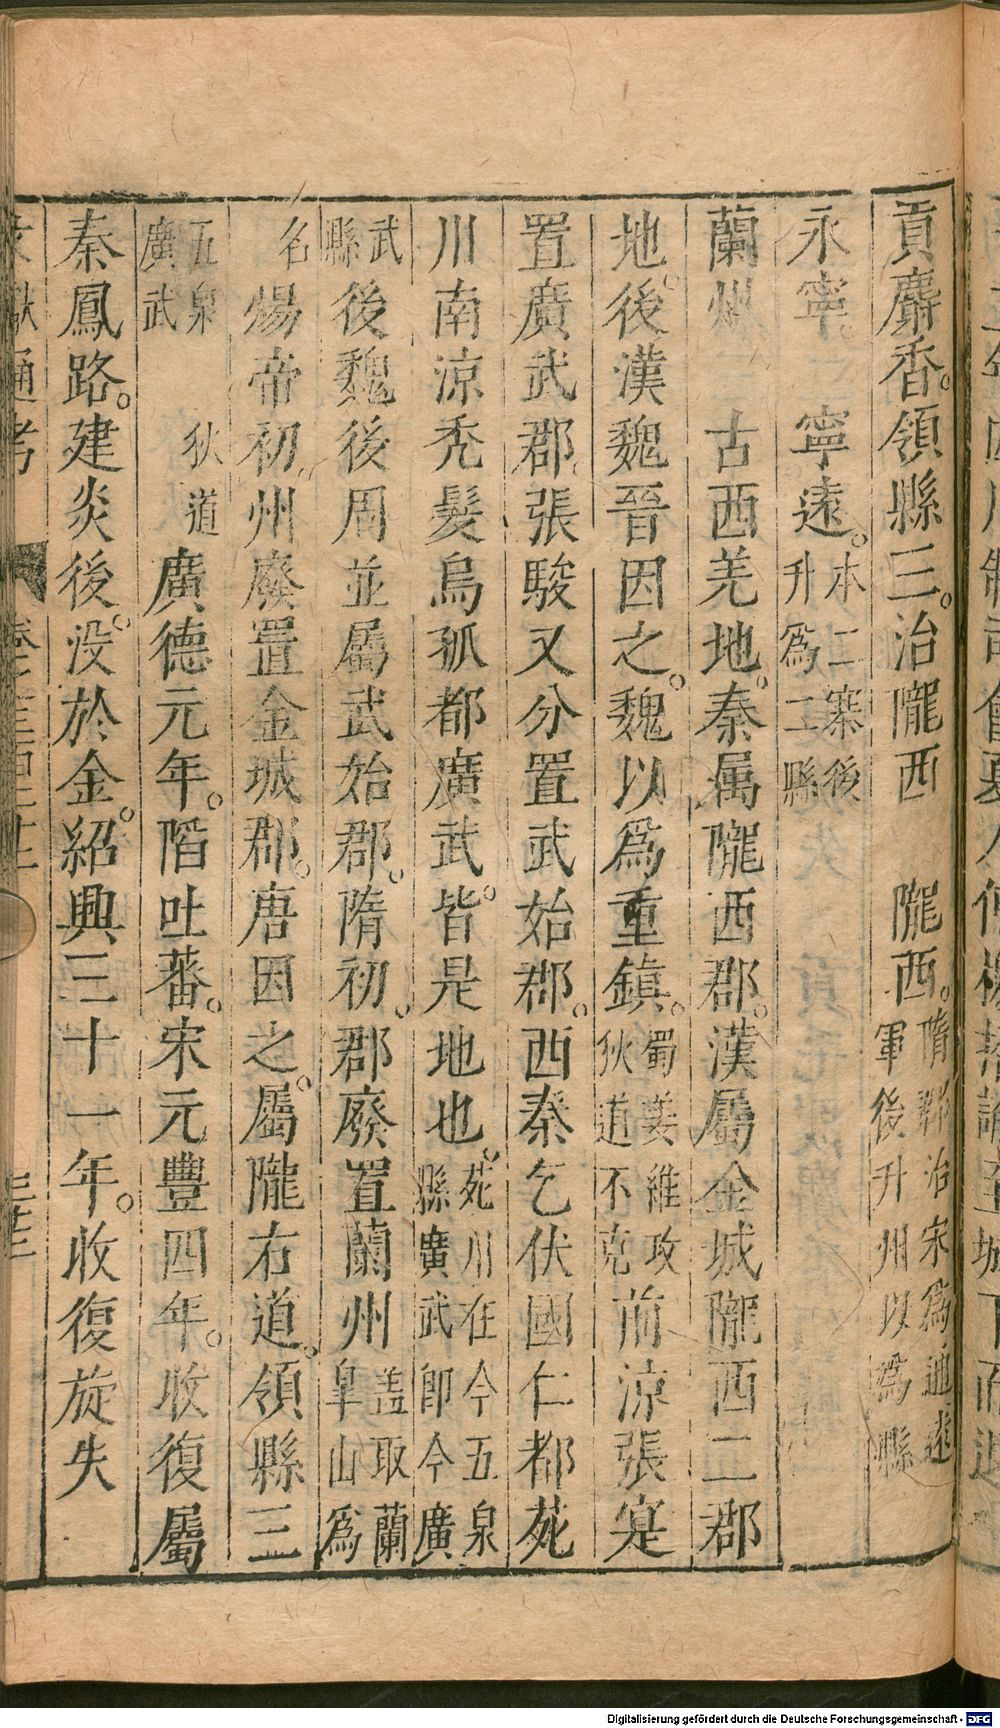 貢麝香。領縣三。治隴西　隴西。隋郡治宋爲通遠軍後升州以爲縣
永寧。　寧遠。本二寨後升爲二縣
蘭州　古西羌地。秦属隴西郡。漢屬金城隴西二郡
地。後漢魏晉因之。魏以爲重鎮。蜀姜維攻狄道不克前涼張寔
置廣武郡張駿又分置武始郡。西秦乞伏國仁都苑
川南涼禿髮烏孤都廣武。皆是地也。苑川在今五泉縣廣武即今廣
武縣後魏後周並屬武始郡。隋初。郡廢置蘭州盖取蘭皐山爲
名煬帝初。州廢置金城郡。唐因之。屬隴右道。領縣三
五泉廣武　狄道廣德元年。陷吐蕃。宋元豐四年。收復屬
秦鳳路。建炎後。没於金。紹興三十一年。收復旋失
獻通考
Digitalisierung gefördert durch die Deutsche Forschungsgemeinschaft - DFG